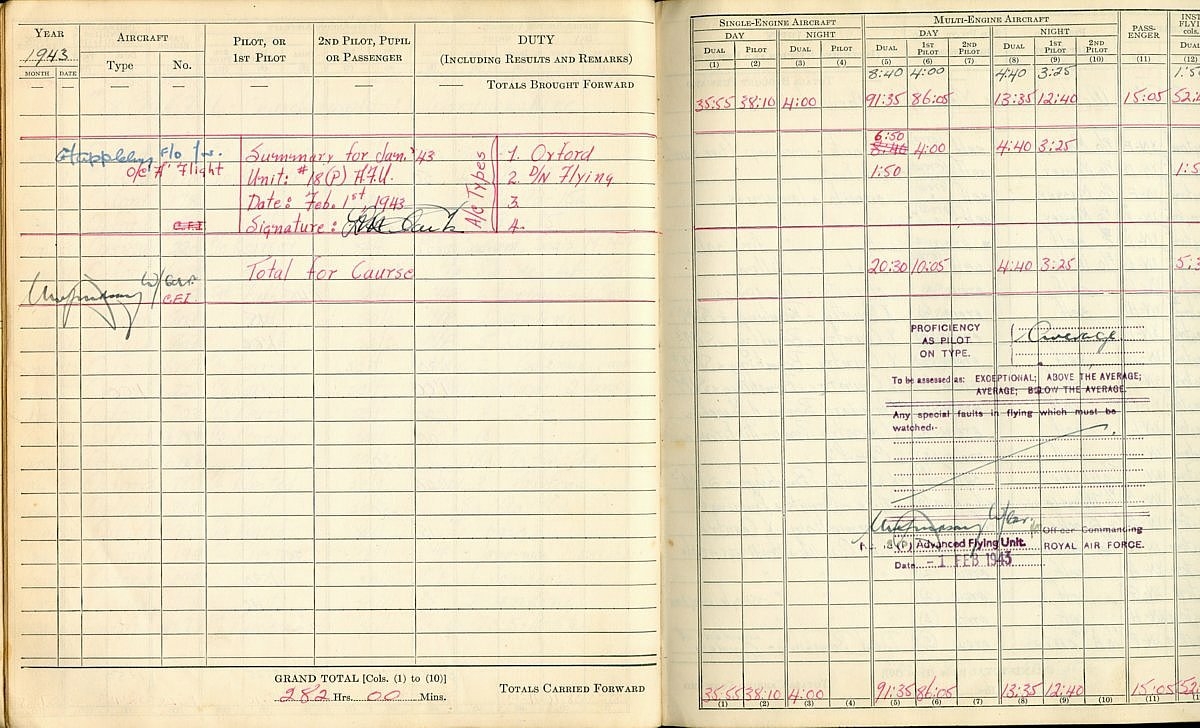 YEAR AIRCRAFT PILOT, OR 1ST PILOT 2ND PILOT, PUPIL OR PASSENGER DUTY (INCLUDING RESULTS AND REMARKS)
1943 Type No.
MONTH DATE
— — — — — — TOTALS BROUGHT FORWARD
F/O for. Summary for Jan. '43 1. Oxford
O/C "A" Flight Unit: #18(P) A.F.U. A/C Types 2. D/N Flying
Date: Feb. 1st, 1943 3.
C.F.I. Signature: 4.
Total for Course
C.F.I.
GRAND TOTAL [Cols. (1) to (10)]
282 Hrs. 00 Mins. TOTALS CARRIED FORWARD
SINGLE-ENGINE AIRCRAFT MULTI-ENGINE AIRCRAFT PASS-ENGER
DAY NIGHT DAY NIGHT
DUAL PILOT DUAL PILOT DUAL 1ST PILOT 2ND PILOT DUAL 1ST PILOT 2ND PILOT
(1) (2) (3) (4) (5) (6) (7) (8) (9) (10) (11)
8:40 4:00 4:40 3:25
35:55 38:10 4:00 91:35 86:05 13:35 12:40 15:05
6:50
8:40 4:00 4:40 3:25
1:50
20:30 10:05 4:40 3:25
PROFICIENCY
AS PILOT Average
ON TYPE.
To be assessed as: EXCEPTIONAL; ABOVE THE AVERAGE;
AVERAGE; BELOW THE AVERAGE.
Any special faults in flying which must be
watched:-
Officer Commanding
(P) Advanced Flying Unit. ROYAL AIR FORCE.
Date -1 FEB 1943
35:55 38:10 4:00 91:35 86:05 13:35 12:40 15:05
(1) (2) (3) (4) (5) (6) (7) (8) (9) (10) (11)